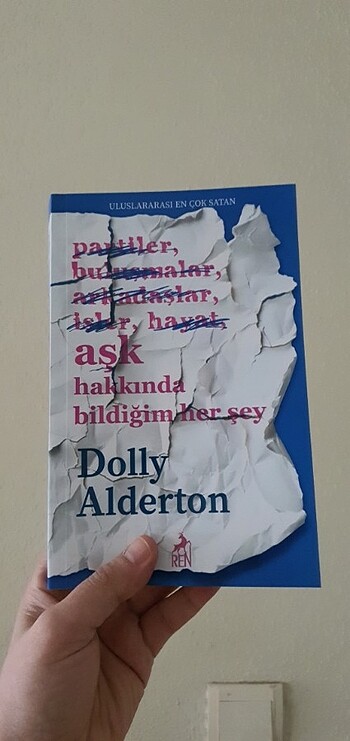 ULUSLARARASI EN ÇOK SATAN
partiler,
buluşmalar,
arkadaşlar,
işler, hayat,
aşk
hakkında
bildiğim her şey
Dolly
Alderton
REN